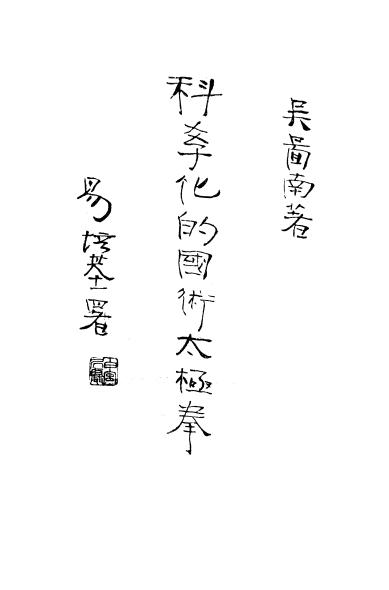 吳圖南著
科學化的國術太極拳
易培基署